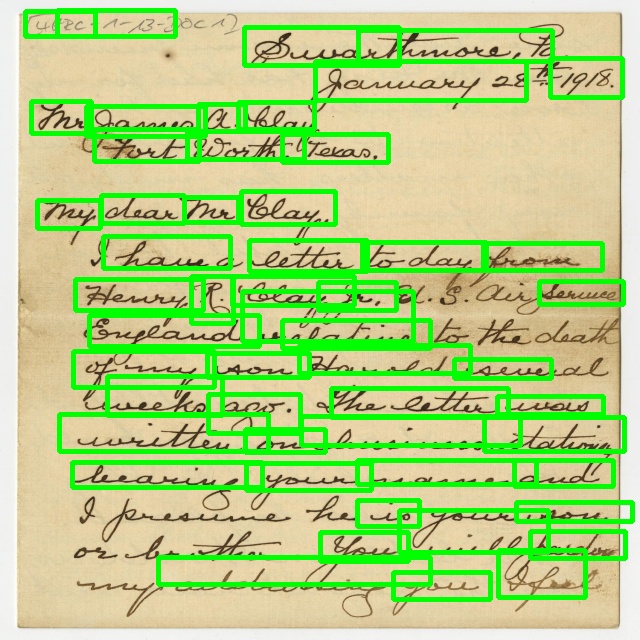 [4EDC-1-13-DOC1]
Swarthmore, Pa
January 28th 1918.
Mr James A. Clay
Fort Worth, Texas.
My dear Mr Clay,
I have a letter to day from
Henry R. Clay Jr. U.S. Air Service
England relating to the death
of my son Harold several
weeks ago. The letter was
written on business stationy
bearing your name and
I presume he is your son
or brother. You will pardon
my addressing you I feel